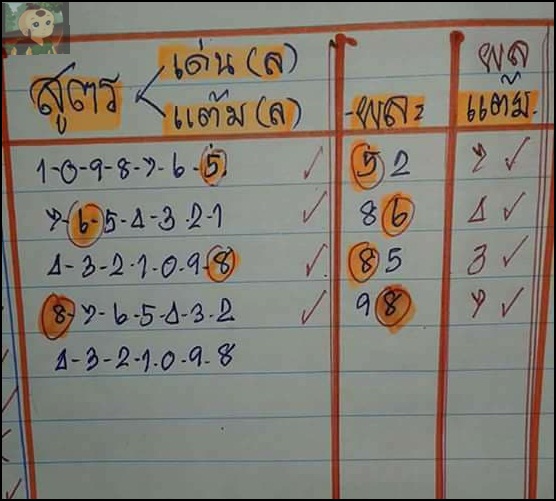 สูตร เด่น (ล) ผล
แต้ม (ล) ผล: แต้ม
1-0-9-8-7-6-5 ✓ 52 7 ✓
7-6-5-4-3-2-1 ✓ 86 4 ✓
4-3-2-1-0-9-8 ✓ 85 3 ✓
8-7-6-5-4-3-2 ✓ 98 7 ✓
4-3-2-1-0-9-8